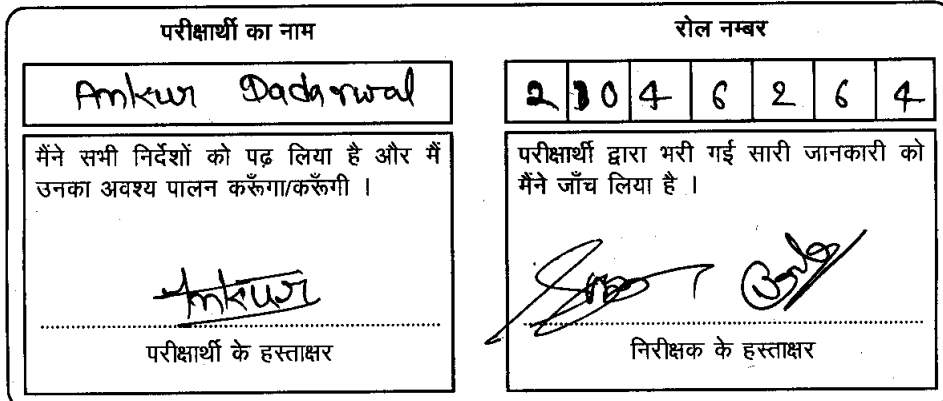 परीक्षार्थी का नाम
Ankur Dadarwal
मैंने सभी निर्देशों को पढ़ लिया है और मैं
उनका अवश्य पालन करूँगा/करूँगी ।
Ankur
परीक्षार्थी के हस्ताक्षर
रोल नम्बर
2 0 4 6 2 6 4
परीक्षार्थी द्वारा भरी गई सारी जानकारी को
मैंने जाँच लिया है ।
निरीक्षक के हस्ताक्षर